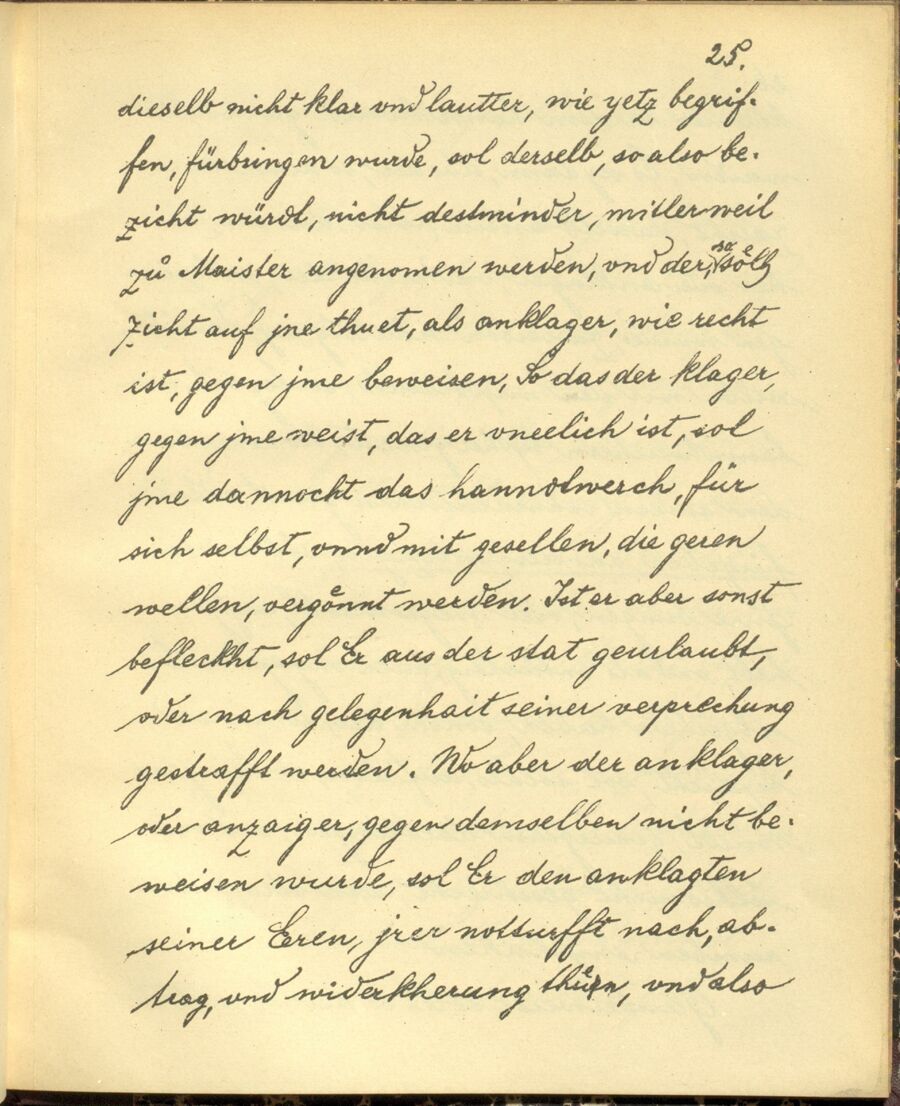 25.
dieselb nicht klar vnd lautter, wie yetz begrif-
fen, fürbringen wurde, sol derselb, so also be-
zicht würdt, nicht destminder, mitlerweil
zů Maister angenomen werden, vnd der, so söℓch
Zicht auf jne thuet, als anklager, wie recht
ist, gegen jme beweisen, So das der klager,
gegen jme weist, das er vneelich ist, sol
jme dannocht das hanndtwerch, für
sich selbst, vnnd mit gesellen, die geren
wellen, vergönnt werden. Ist er aber sonst
befleckht, sol Er aus der stat geurlaubt,
oder nach gelegenhait seiner verprechung
gestrafft werden. Wo aber der anklager,
oder anzaiger, gegen demselben nicht be-
weisen wurde, sol Er den anklagten
seiner Eren, jrer notturfft nach, ab-
trag, vnd widerkherung thůen, vnd also